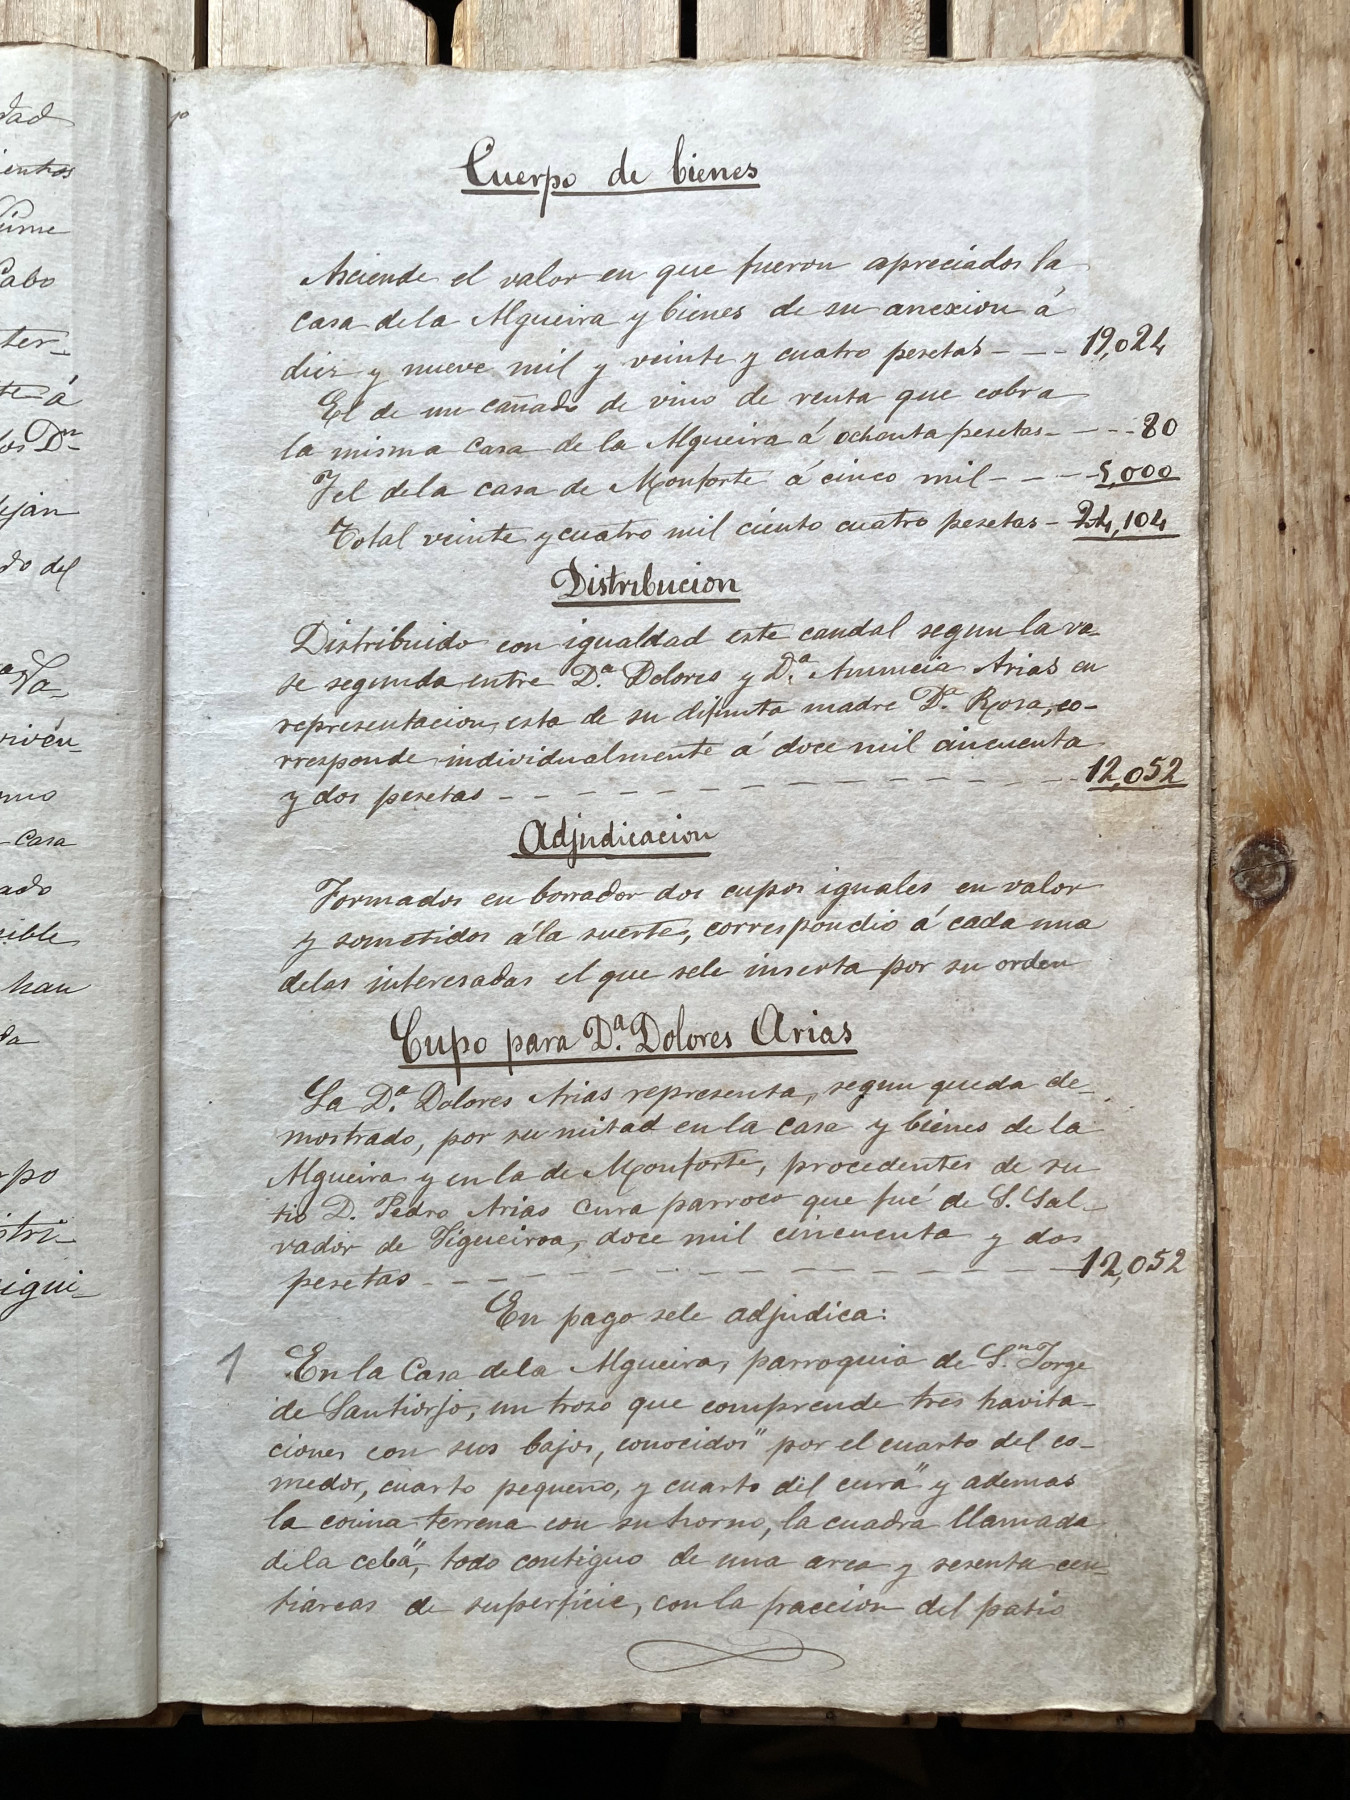 dad
ientos
Cabo
ter-
te á
los Dn
ejan
do del
Va-
viven
casa
ado
sible
han
da
rpo
stri-
sigui-
Cuerpo de bienes
Asciende el valor en que fueron apreciados la
casa dela Algueira y bienes de su anexion á
diez y nueve mil y veinte y cuatro pesetas - - - 19,024
El de un cañado de vino de renta que cobra
la misma casa de la Algueira á ochenta pesetas - - - 80
Y el dela casa de Monforte á cinco mil - - - 5,000
Total veinte y cuatro mil ciento cuatro pesetas - 24,104
Distribucion
Distribuido con igualdad este caudal segun la va-
se segunda entre D.ª Dolores y D.ª Anuncia Arias en
representacion esta de su difunta madre D.ª Rosa, co-
rresponde individualmente á doce mil cincuenta
y dos pesetas - - - - - - - - - - - - 12,052
Adjudicacion
Formados en borrador dos cupos iguales en valor
y sometidos á la suerte, correspondio á cada una
delas interesadas el que sele inserta por su orden
Cupo para D.ª Dolores Arias
La D.ª Dolores Arias representa, segun queda de-
mostrado, por su mitad en la casa y bienes de la
Algueira y en la de Monforte, procedentes de su
tio D. Pedro Arias Cura parroco que fué de S. Sal-
vador de Figueiroa, doce mil cincuenta y dos
pesetas - - - - - - - - - - - - 12,052
En pago sele adjudica:
1 En la Casa dela Algueira, parroquia de S.n Jorge
de Santiorjo, un trozo que comprende tres havita-
ciones con sus bajos, conocidos "por el cuarto del co-
medor, cuarto pequeño, y cuarto del cura" y ademas
la cocina terrena con su horno, la cuadra llamada
de la ceba", todo contiguo de una area y sesenta cen-
tiareas de superficie, con la fraccion del patio